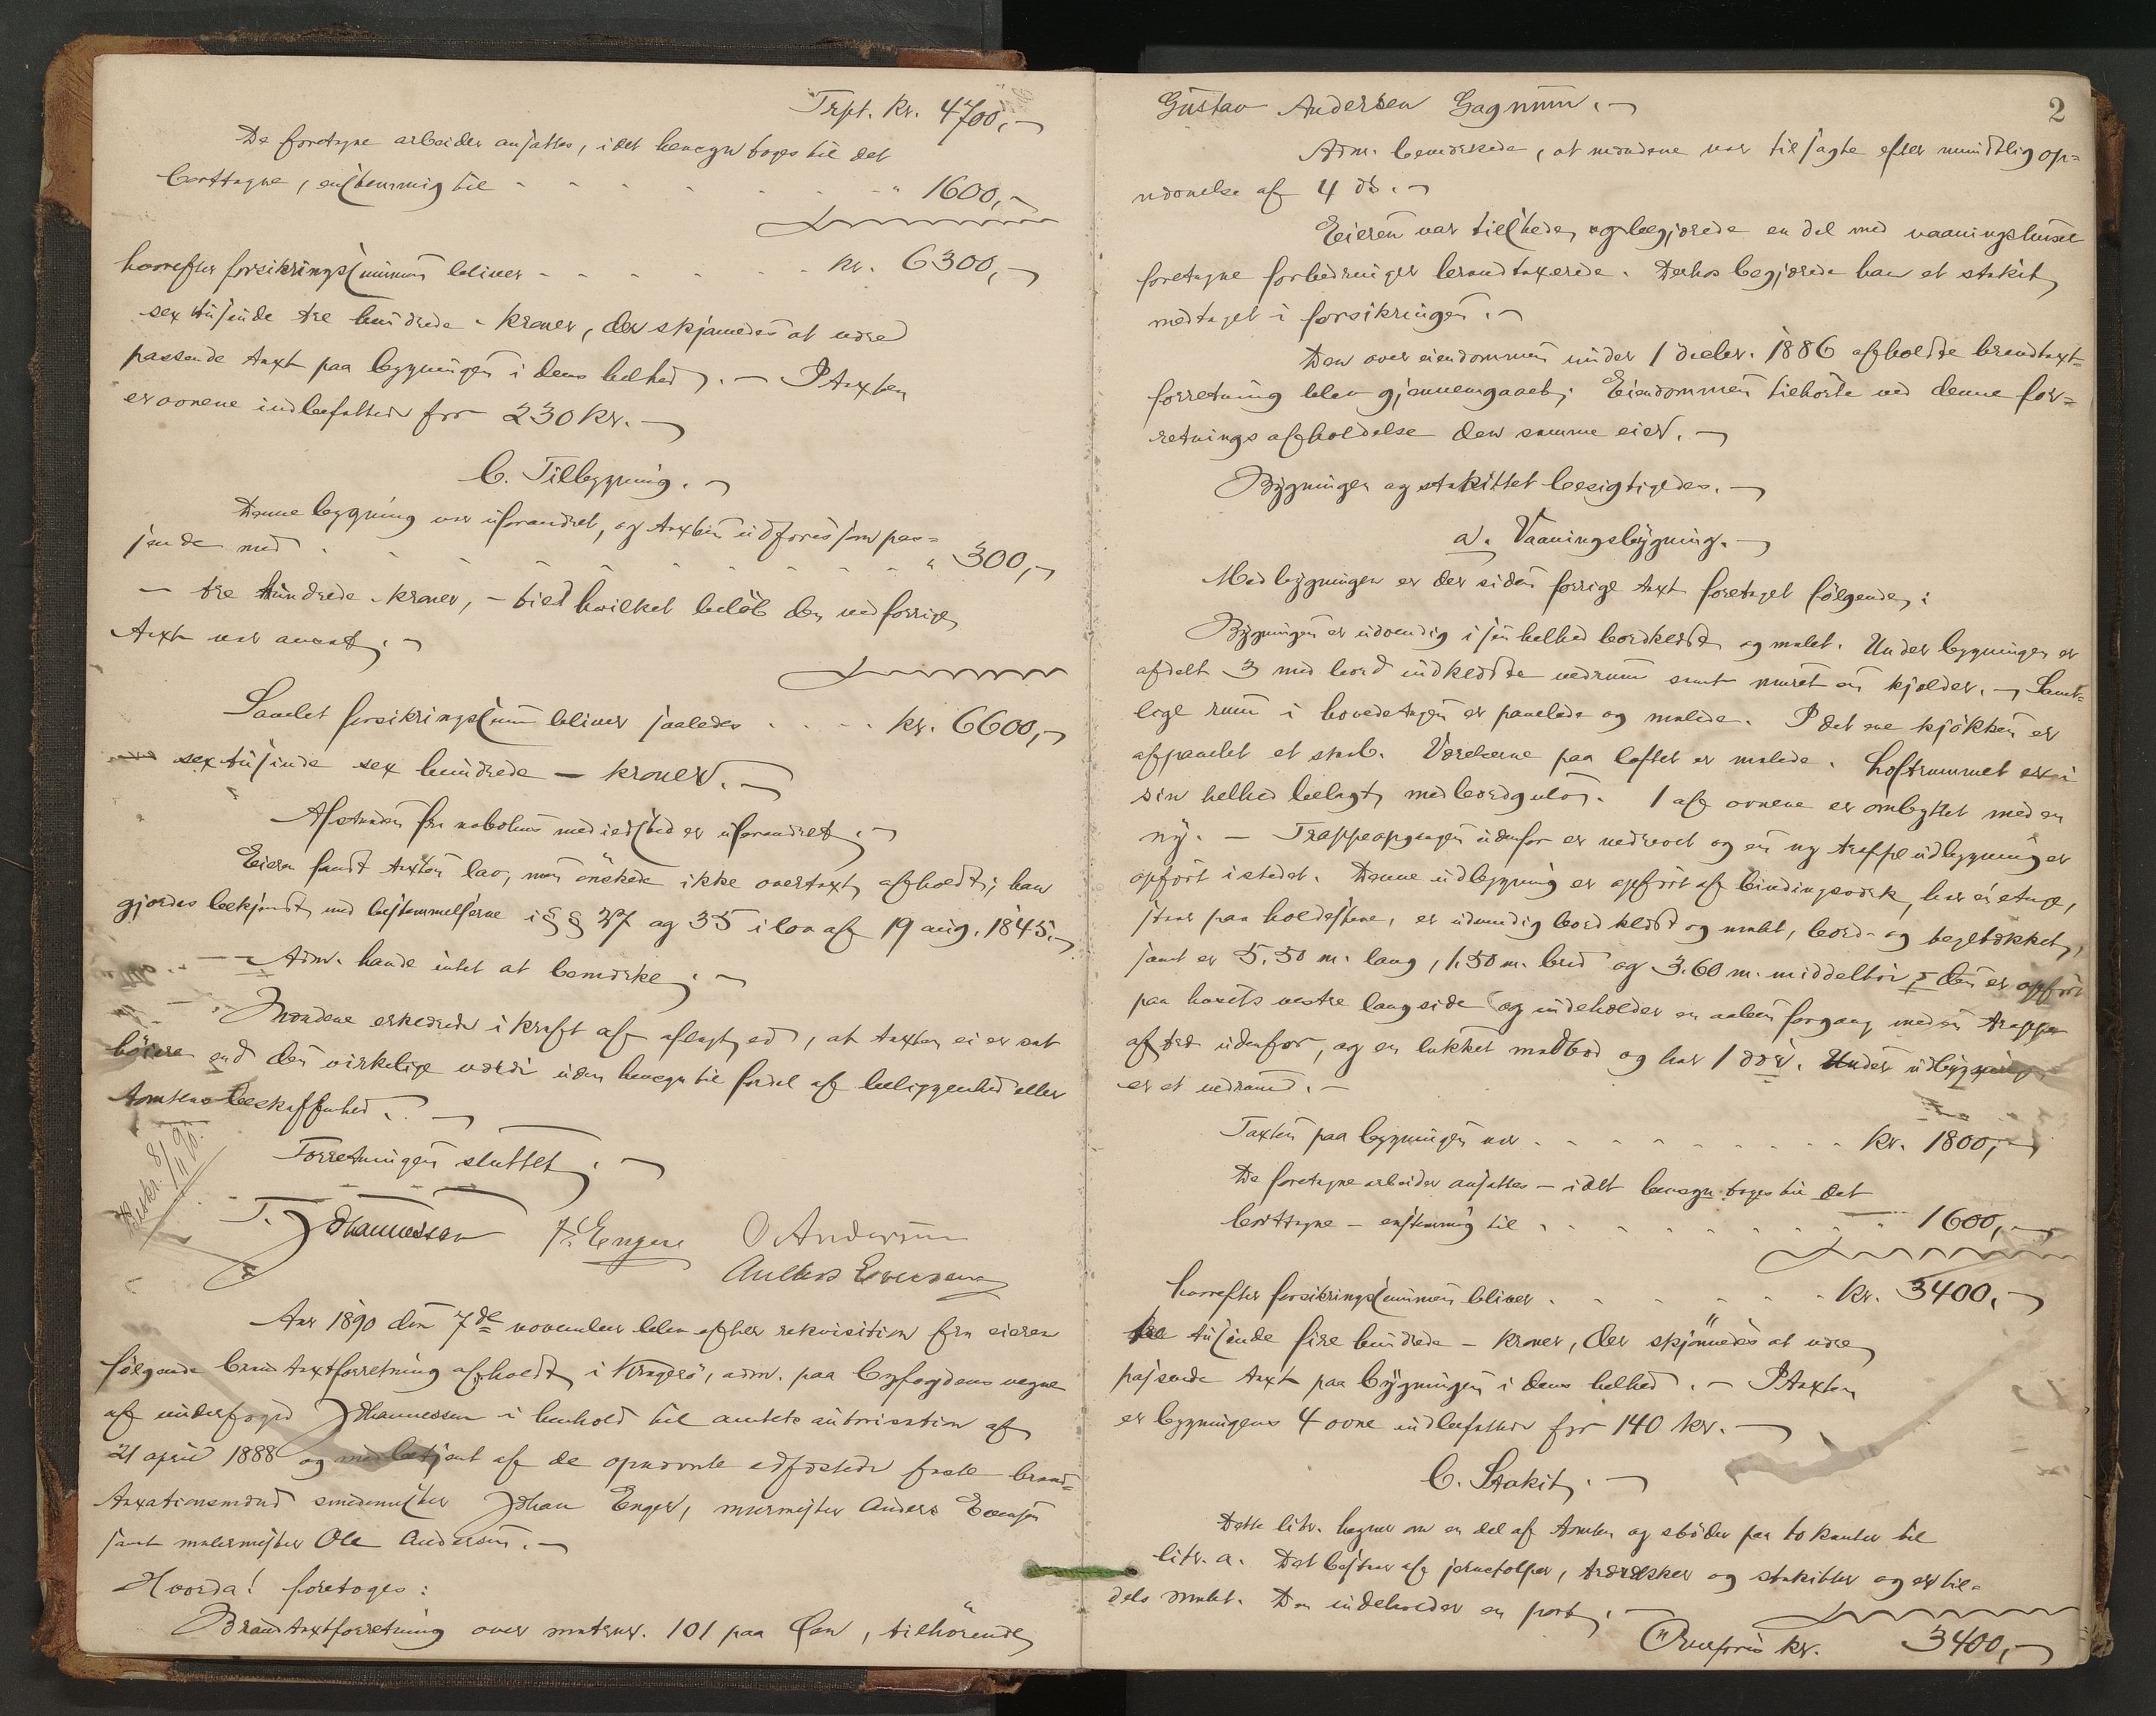 Trpt. kr. 4700,-
De foretagne arbeider ansattes, idet hensyn toges til det
borttagne, enstemmig til - - - - - - " 1600,-
hvorefter forsikringssummen bliver - - - - - kr. 6300,-
sex tusinde tre hundrede - kroner, der skjønnedes at være
passende taxt paa bygningen i dens helhed. - I taxten
er ovnene indbefattede for 230 kr. -
b. Tilbygning. -
Denne bygning var uforandret, og taxten udføres som pas=
sende med - - - - - - - - - " 300,-
- tre hundrede - kroner, - til hvilket beløb den ved forrige
taxt var ansat. -
Samlet forsikringssum bliver saaledes - - - - kr. 6600,-
sextusinde sex hundrede - kroner. -
Afstanden fra nabohus med ildsted er uforandret. -
Eieren fandt taxten lav, men ønskede ikke overtaxt afholdt; han
gjordes bekjendt med bestemmelserne i §§ 37 og 35 i lov af 19 aug. 1845. -
- Adm. havde intet at bemærke. -
Mændene erklærede i kraft af aflagt ed, at taxten ei er sat
høiere end den virkelige værdi uden hensyn til fordel af beliggenhed eller
tomtens beskaffenhed. -
Forretningen sluttet. -
Beskr. 8/11 90.
T. Johannessen J. Enger O Andersen
Anders Evensen
Aar 1890 den 7de november blev efter rekvisition fra eieren
følgende brandtaxtforretning afholdt i Kragerø, adm. paa byfogdens vegne
af underfoged Johannessen i henhold til amtets autorisation af
21 april 1888 og medbetjent af de opnævnte edfæstede faste brand=
taxationsmænd smedemester Johan Enger, murmester Anders Evensen
samt malermester Ole Andersen. -
Hvorda! foretoges:
Brandtaxtforretning over matrnr. 101 paa Øen, tilhørende
2
Gustav Andersen Gagnum. -
Adm. bemærkede, at mændene var tilsagte efter mundtlig op=
nævnelse af 4 ds. -
Eieren var tilstede, og begjærede en del med vaaningshuset
foretagne forbedringer brandtaxerede. Derhos begjærede han et stakit
medtaget i forsikringen. -
Den over eiendommen under 1 decbr. 1886 afholdte brandtaxt=
forretning blev gjennemgaaet; Eiendommen tilhørte ved denne for=
retnings afholdelse den samme eier. -
Bygningen og stakittet besigtigedes. -
a. Vaaningsbygning. -
Med bygningen er der siden forrige taxt foretaget følgende:
Bygningen er udvendig i sin helhed bordklædt og malet. Under bygningen er
afdelt 3 med bord indklædte vedrum samt muret en kjelder. - Samt=
lige rum i hovedetagen er panelede og malede. I det ene kjøkken er
afpanelet et skab. Værelserne paa loftet er malede. Loftrummet er i
sin helhed belagt med bordgulv. 1 af ovnene er ombyttet med en
ny. - Trappeopgangen udenfor er nedrevet og en ny trappeudbygning er
opført istedet. Denne udbygning er opført af bindingsværk, har én etage,
staar paa holdestene, er udvendig bordklædt og malet, bord- og teglstækket,
samt er 5.50 m. lang, 1.50 m. bred og 3.60 m. middelhøi; den er opført
paa husets vestre langside og indeholder en aaben forgang med en trappe
af træ udenfor, og en lukket madbod og har 1 dør. Under udbygningen
er et vedrum. -
Taxten paa bygningen var - - - - - - - - - kr. 1800,-
De foretagne arbeider ansattes - idet hensyn toges til det
borttagne - enstemmig til - - - - - - - - " 1600,-
hvorefter forsikringssummen bliver - - - - - - kr. 3400,-
tre tusinde fire hundrede - kroner, der skjønnedes at være
passende taxt paa bygningen i dens helhed. - I taxten
er bygningens 4 ovne indbefattede for 140 kr. -
b. Stakit. -
Dette litr. hegner om en del af tomten og støder paa to kanter til
litr. a. Det bestaar af jernstolper, trærækker og stakitter og er til-
dels malet. Den indeholder en port. -
Overføres kr. 3400,-